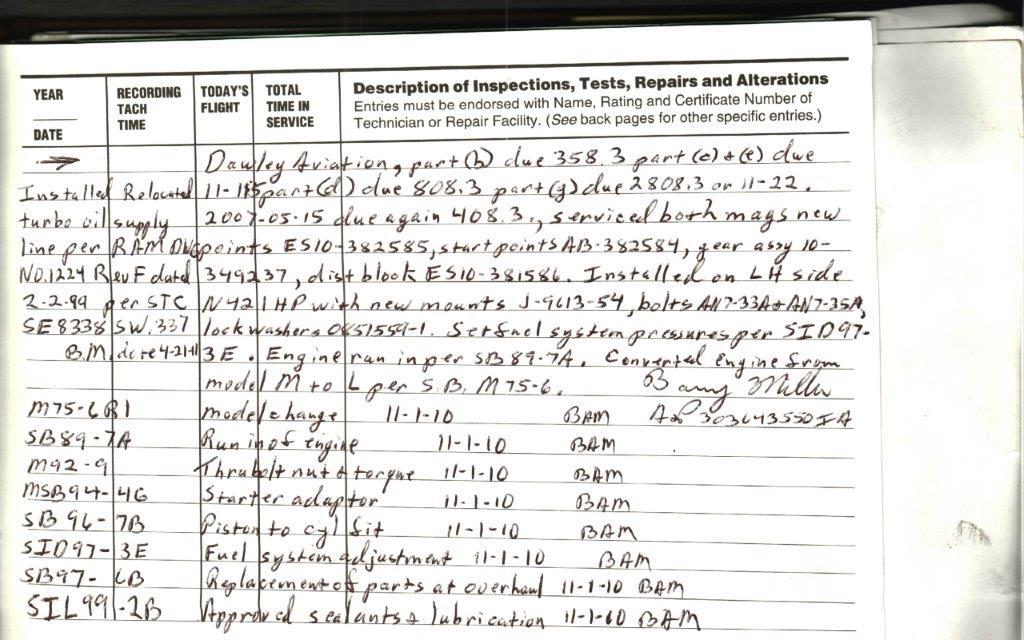 YEAR
DATE
RECORDING TACH TIME
TODAY'S FLIGHT
TOTAL TIME IN SERVICE
Description of Inspections, Tests, Repairs and Alterations
Entries must be endorsed with Name, Rating and Certificate Number of
Technician or Repair Facility. (See back pages for other specific entries.)
→ Dawley Aviation, part (b) due 358.3 part (c) & (e) due
Installed Relocated 11-115 part (d) due 808.3 part (g) due 2808.3 or 11-22.
turbo oil supply 2007-05-15 due again 408.3., serviced both mags new
line per RAM DWG points ES10-382585, start points AB-382584, gear assy 10-
NO.1224 Rev F dated 349237, dist block ES10-381586. Installed on LH side
2-2-99 per STC N421HP with new mounts J-9613-54, bolts AN7-33A & AN7-35A,
SE8338SW.337 lockwashers 0851559-1. Set fuel system pressures per SID97-
B.M. date 4-21-11 3E. Engine run in per SB89-7A. Converted engine from
model M to L per S.B. M75-6. Barry Miller
M75-6R1 model change 11-1-10 BAM A&P 303643550IA
SB89-7A Run in of engine 11-1-10 BAM
M92-9 Thrubolt nut & torque 11-1-10 BAM
MSB94-4G Starter adaptor 11-1-10 BAM
SB96-7B Piston to cyl fit 11-1-10 BAM
SID97-3E Fuel system adjustment 11-1-10 BAM
SB97-6B Replacement of parts at overhaul 11-1-10 BAM
SIL99-2B Approved sealants & lubrication 11-1-10 BAM